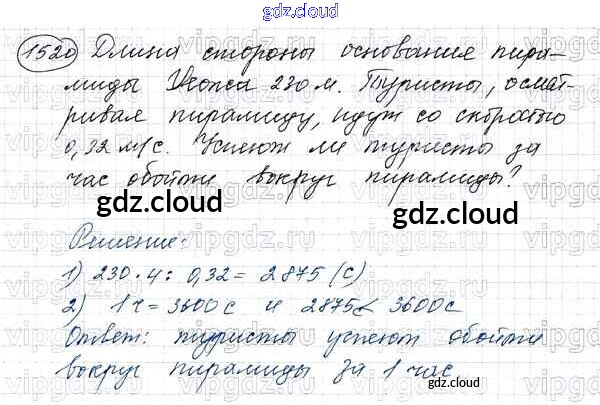 gdz.cloud
1520 Длина стороны основания пира-
миды Хеопса 230 м. Туристы, осмат-
ривая пирамиду, идут со скоростью
0,32 м/с. Успеют ли туристы за
час обойти вокруг пирамиды?
gdz.cloud
gdz.cloud
Решение:
1) 230 · 4 : 0,32 = 2875 (с)
2) 1 ч = 3600 с и 2875 < 3600 с
Ответ: туристы успеют обойти
вокруг пирамиды за 1 час
gdz.cloud